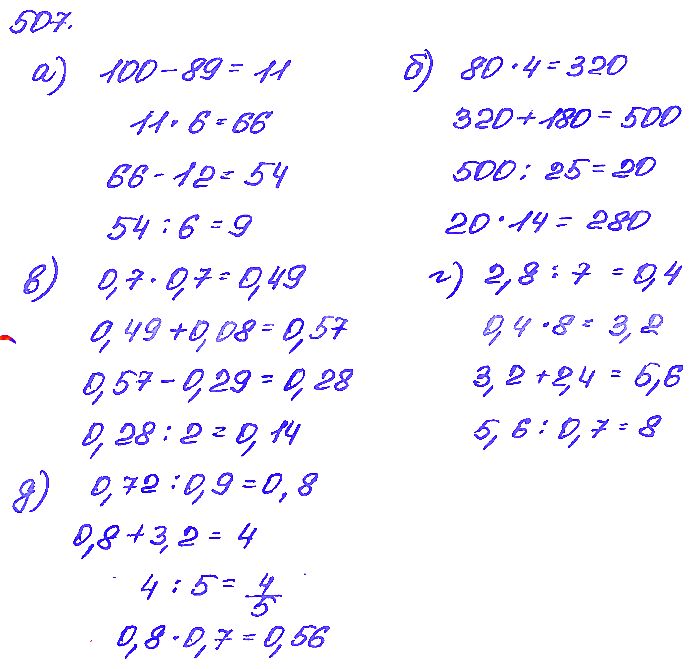 507.
а) 100 - 89 = 11
11 · 6 = 66
66 - 12 = 54
54 : 6 = 9
б) 80 · 4 = 320
320 + 180 = 500
500 : 25 = 20
20 · 14 = 280
в) 0,7 · 0,7 = 0,49
0,49 + 0,08 = 0,57
0,57 - 0,29 = 0,28
0,28 : 2 = 0,14
г) 2,8 : 7 = 0,4
0,4 · 8 = 3,2
3,2 + 2,4 = 5,6
5,6 : 0,7 = 8
д) 0,72 : 0,9 = 0,8
0,8 + 3,2 = 4
4 : 5 = 4/5
0,8 · 0,7 = 0,56